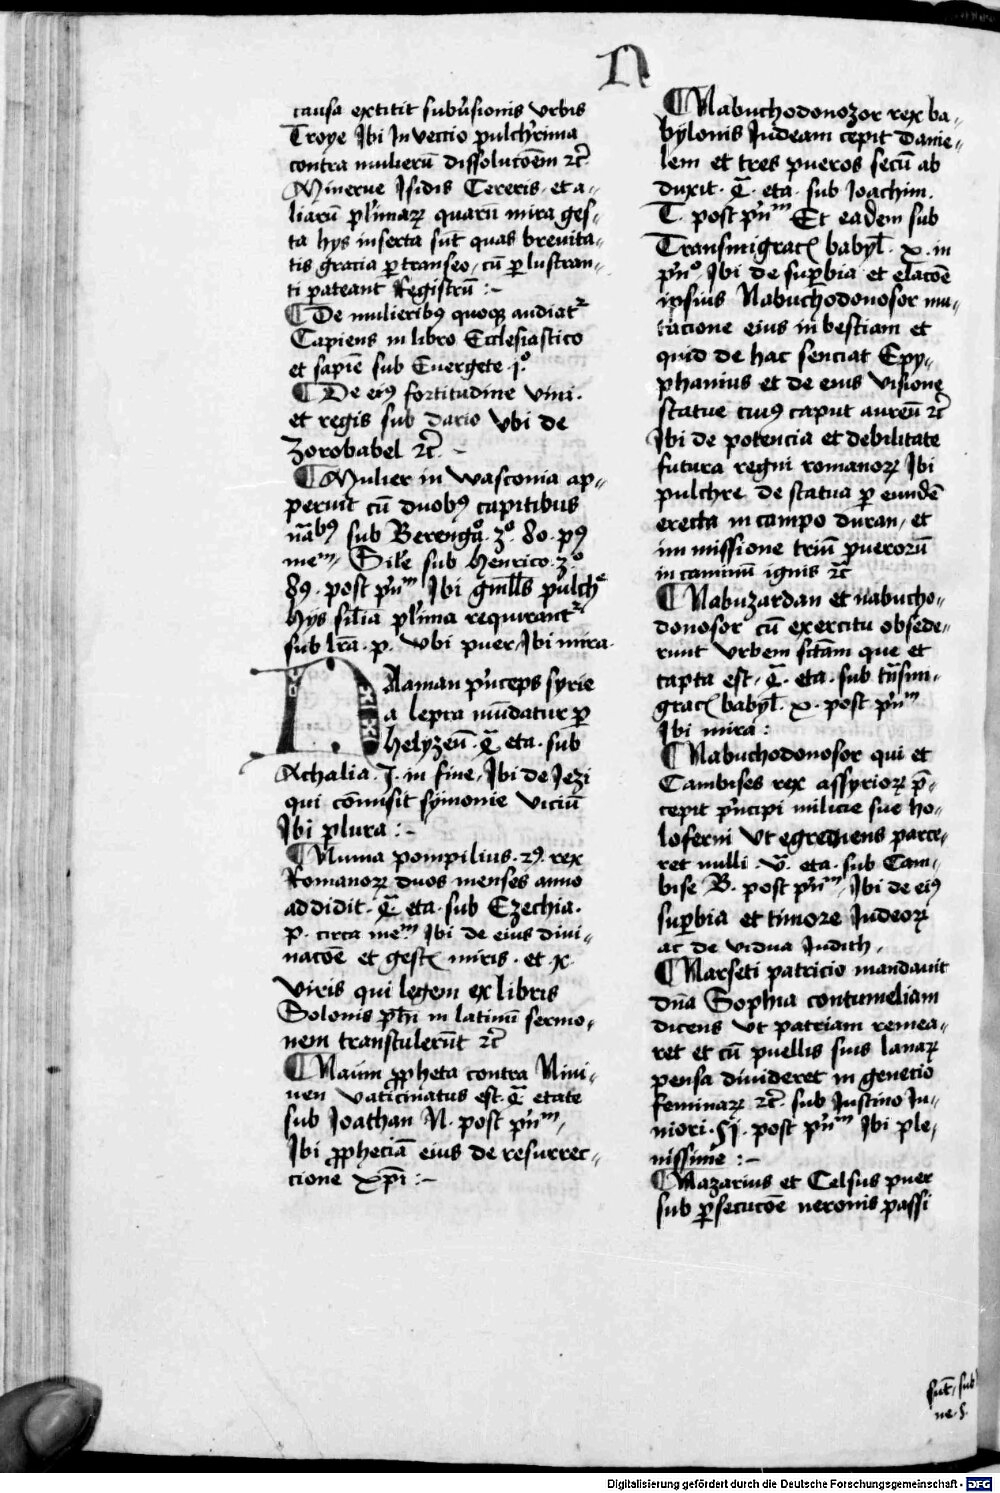 N
causa extitit subu̓sionis urbis
Troye Ibi Inveccio pulch̓rima
contra mulierū dissolucōem ⁊c̄
Minerue Isidis Cereris et a⸗
liarū pl̓imaꝝ quarū mira ges⸗
ta hys inserta sūt quas breuita⸗
tis gracia ꝑtranseo, cū ꝑlustran⸗
ti pateant Registrū :~
¶ De mulieribꝰ quoqꝫ audiat᷑
Sapiens in libro Ecclesiastico
et sapiē sub Euergete .i.°
¶ De eiꝰ fortitudine vini.
et regis sub dario vbi de
Zorobabel ⁊c̄ ~
¶ Mulier in wasconia ap⸗
peruit cū duobꝰ capitibus
sub Berenga° .3.° 80. pꝰ
meͫ, Sil̓e sub henrico .3.°
89. post pn̄ͫ Ibi gn̄ll̓s pulch̓
hys sil̓ia pl̓ima requirant᷑
sub lr̄a .p. vbi puer, Ibi mira.
Naaman pn̓ceps syrie
a lepra mūdatur ꝑ
helyzeū .Q̄ eta. sub
Athalia .J. in fine, Ibi de Jezi
qui cōmisit symonie viciū
Ibi plura :~
¶ Numa pompilius .2ꝰ. rex
Romanoꝝ duos menses anno
addidit .Q̄ eta. sub Ezechia.
P. circa meͫ. Ibi de eius diui⸗
nacōe et gestꝭ miris. et .x.
viris qui legem ex libris
Solonis in latinū sermo⸗
nem transtulerūt ⁊c̄
¶ Naūm ꝓpheta contra Nini⸗
uen vaticinatus est .Q̄ etate
sub Joathan N. post pn̄ͫ,
Ibi ꝓpheciā eius de resurrec⸗
cione xp̄i :~
¶ Nabuchodonozor rex ba⸗
bylonis Judeam cepit Danie⸗
lem et tres pueros secū ab
duxit .Q̄. eta. sub Joachim.
T. post pn̄ͫ Et eadem sub
Transmigracꝭ babyl̄. x. in
pn̄°, Ibi de suꝑbia et elacōe
ipsius Nabuchodonosor mu⸗
tacione eius in bestiam et
quid de hac senciat Epy⸗
phanius et de eius visione
statue cuiꝰ caput aureū ⁊c̄
Ibi de potencia et debilitate
futura regni romanoꝝ Ibi
pulchre de statua ꝑ eundē
erecta in campo duran, et
in missione triū puerorū
in caminū ignis ⁊c̄
¶ Nabuzardan et nabucho⸗
donosor cū exercitu obsede⸗
runt vrbem sitam que et
capta est, .Q̄. eta. sub tn̄smi⸗
gracꝭ babyl̄. x. post pn̄ͫ
Ibi mira :
¶ Nabuchodonosor qui et
Cambises rex assyrioꝝ p̄⸗
cepit pn̓cipi milicie sue ho⸗
loferni vt egrediens parce⸗
ret nulli .V̄. eta. sub Cam⸗
bise B. post pn̄ͫ, Ibi de eiꝰ
suꝑbia et timore Judeoꝝ
ac de vidua Judith,
¶ Narseti patricio mandauit
dn̄a Sophia contumeliam
dicens vt patriam remea⸗
ret et cū puellis suis lanaꝝ
pensa diuideret in genecio
feminaꝝ ⁊c̄. sub Justino Ju⸗
niori. post pn̄ͫ Ibi ple⸗
nissime :~
¶ Nazarius et Celsus puer
sub ꝑsecucōe neronis passi
sūt, sub
ne.
Digitalisierung gefördert durch die Deutsche Forschungsgemeinschaft - DFG